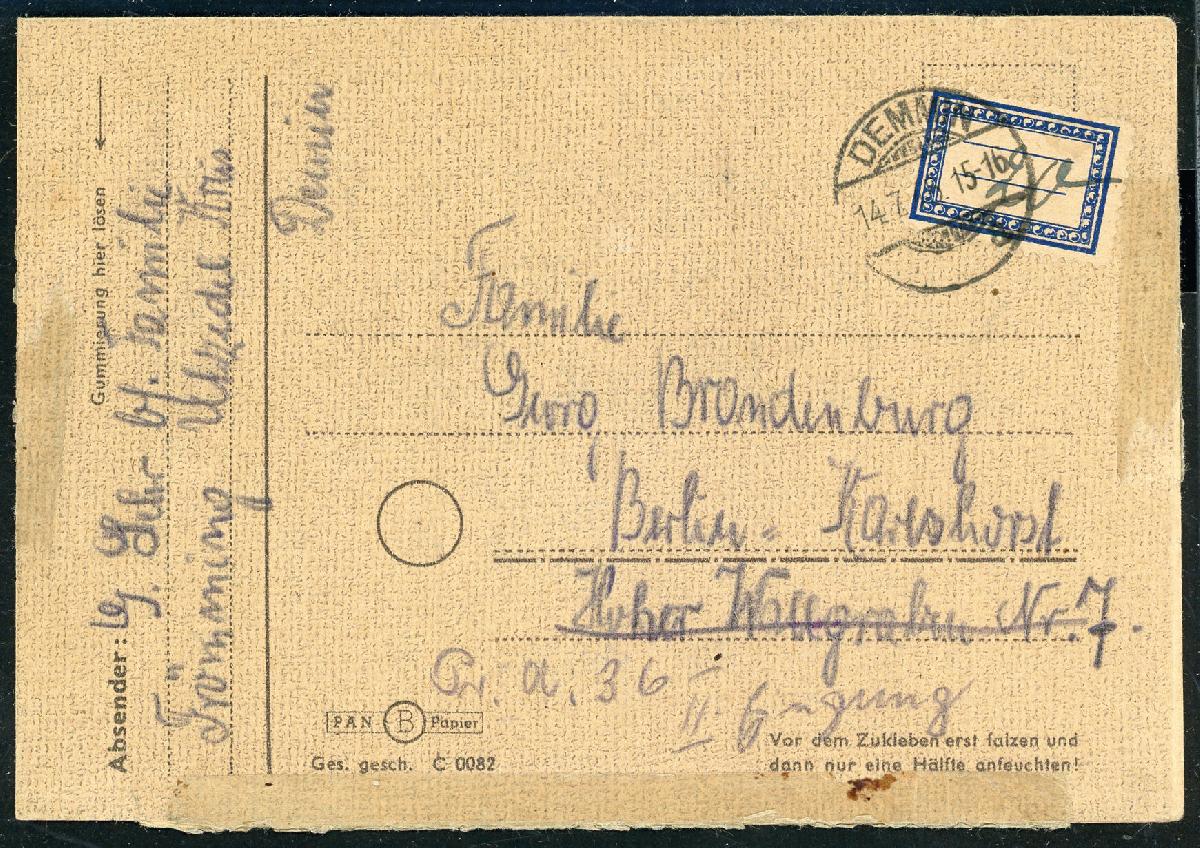 Gummierung hier lösen
Absender: G. Gehr bf. Familie
Frömming
Demmin
DEMMIN
14.7.
15-16
Familie
Georg Brandenburg
Berlin-Karlshorst
Hoher Wallgraben Nr. 7.
36 II
PAN B Papier
Ges. gesch. C 0082
Vor dem Zukleben erst falzen und
dann nur eine Hälfte anfeuchten!